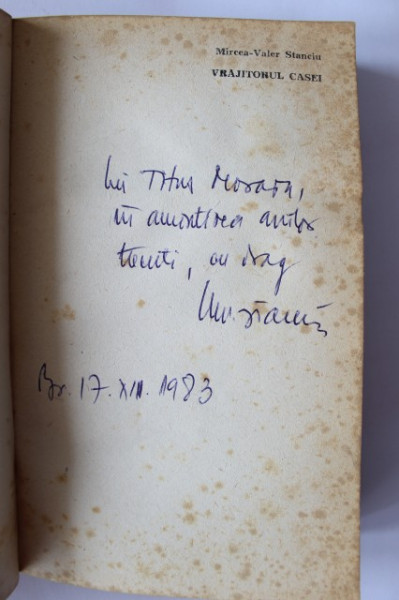 Mircea-Valer Stanciu
VRĂJITORUL CASEI
Lui Titus Moraru,
în amintirea anilor
tineri, cu drag
MV. Stanciu
Br. 17. XII. 1983